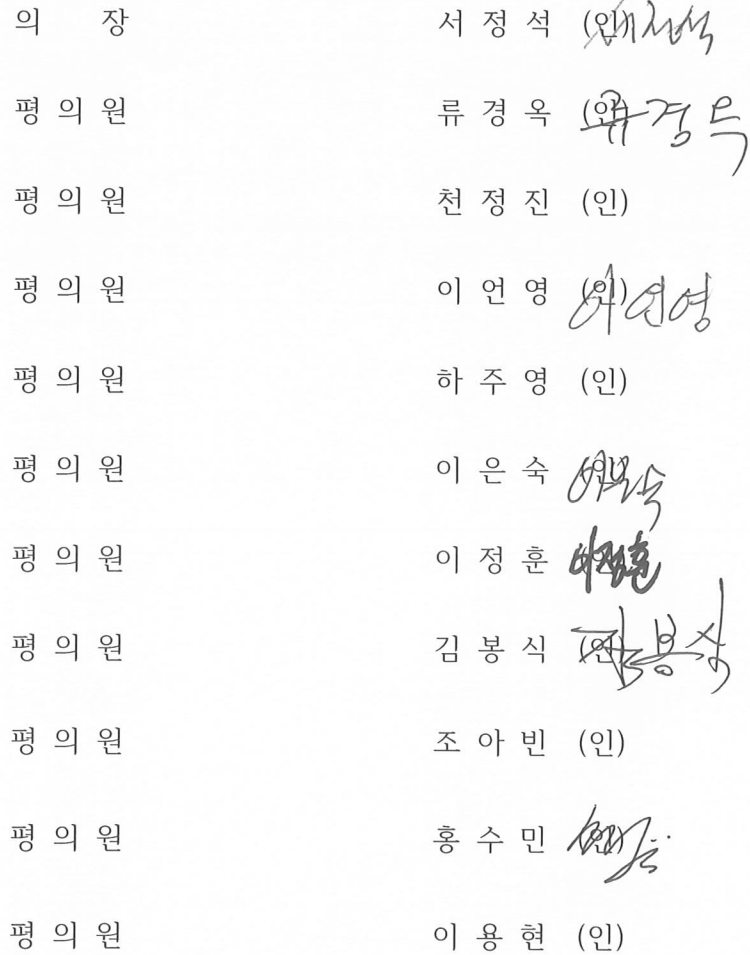 의 장 서 정 석 (인) 서정석
평 의 원 류 경 옥 (인) 류경옥
평 의 원 천 정 진 (인)
평 의 원 이 언 영 (인) 이언영
평 의 원 하 주 영 (인)
평 의 원 이 은 숙 (인) 이은숙
평 의 원 이 정 훈 (인) 이정훈
평 의 원 김 봉 식 (인) 김봉식
평 의 원 조 아 빈 (인)
평 의 원 홍 수 민 (인)
평 의 원 이 용 현 (인)